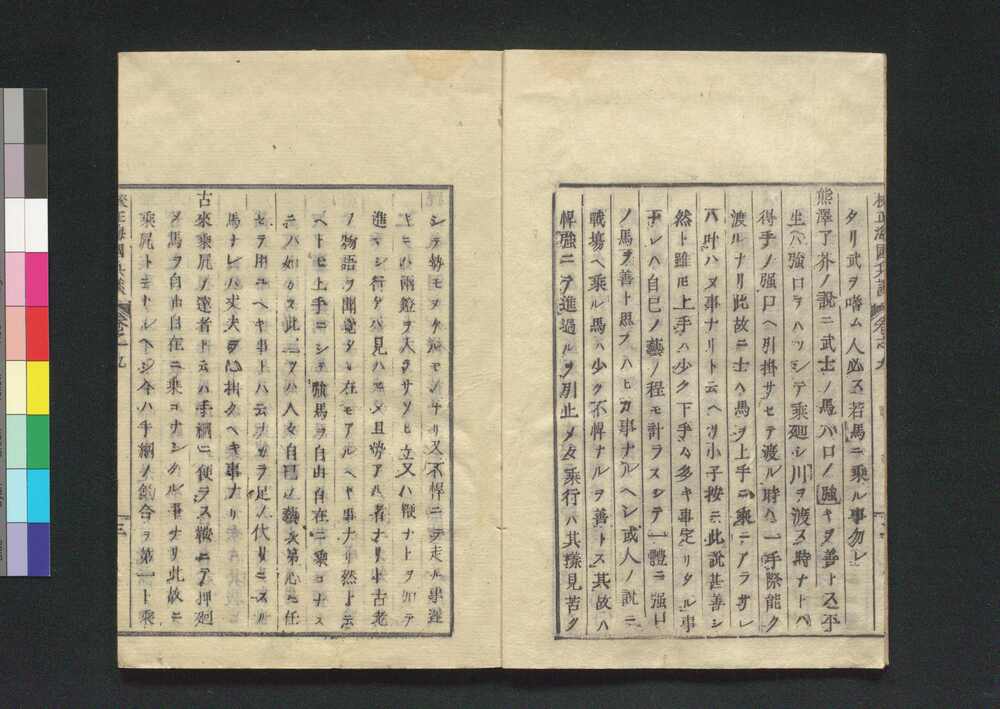 タリ武ヲ嗜ム人必ス若馬ニ乘ル事勿レ
熊澤了芥ノ說ニ武士ノ馬ハ口ノ強キヲ善トス平
生ハ強口ヲハツシテ乘廻シ川ヲ渡ス時ナトハ
得手ノ强口ヘ引掛サセテ渡ル時ハ一手際能ク
渡ルナリ此故ニ士ハ馬ヲ上手ニ乘ニアラサレ
ハ叶ハヌ事ナリト云ヘリ小子按ニ此說甚善シ
然ト雖𪜈上手ハ少ク下手ハ多キ事定リタル事
ナレハ自己ノ藝ノ程モ計ラスシテ一體ニ强口
ノ馬ヲ善ト思フハヒガ事ナルヘシ或人ノ說ニ
戰場ヘ乘ル馬ハ少ク不悍ナルヲ善トス其故ハ
悍強ニテ進過ルヲ引止メ〻乘行ハ其樣見苦ク
シテ勢モヌケ又不悍ニテ走ル事遲
キニハ兩鐙ヲ入ヲサソヒ立又ハ鞭ナトヲ加テ
進マシ行タハ見ハエ又且勢アル者ナリト古老
ノ物語ヲ聞覺タル在モアルヘキ事ナリ然トモ
ヘトモ上手ニシテ驗馬ヲ自由自在ニ乘コナス
ニハ如カス此二ツハ人〻自己ノ藝次第心ニ任
セテ用ユヘキ事トハ云ナカラ足ノ代リニスル
馬ナレハ丈夫ヲ心掛クヘキ事ナリ
古來乘尻ノ達者ト云ハ手綱ニ便ラス鞍ニテ押廻
メ馬ヲ自由自在ニ乘コナシタル事ナリ此故ニ
乘尻トモ云ルヘシ今ハ手綱ノ釣合ヲ第一ト乘